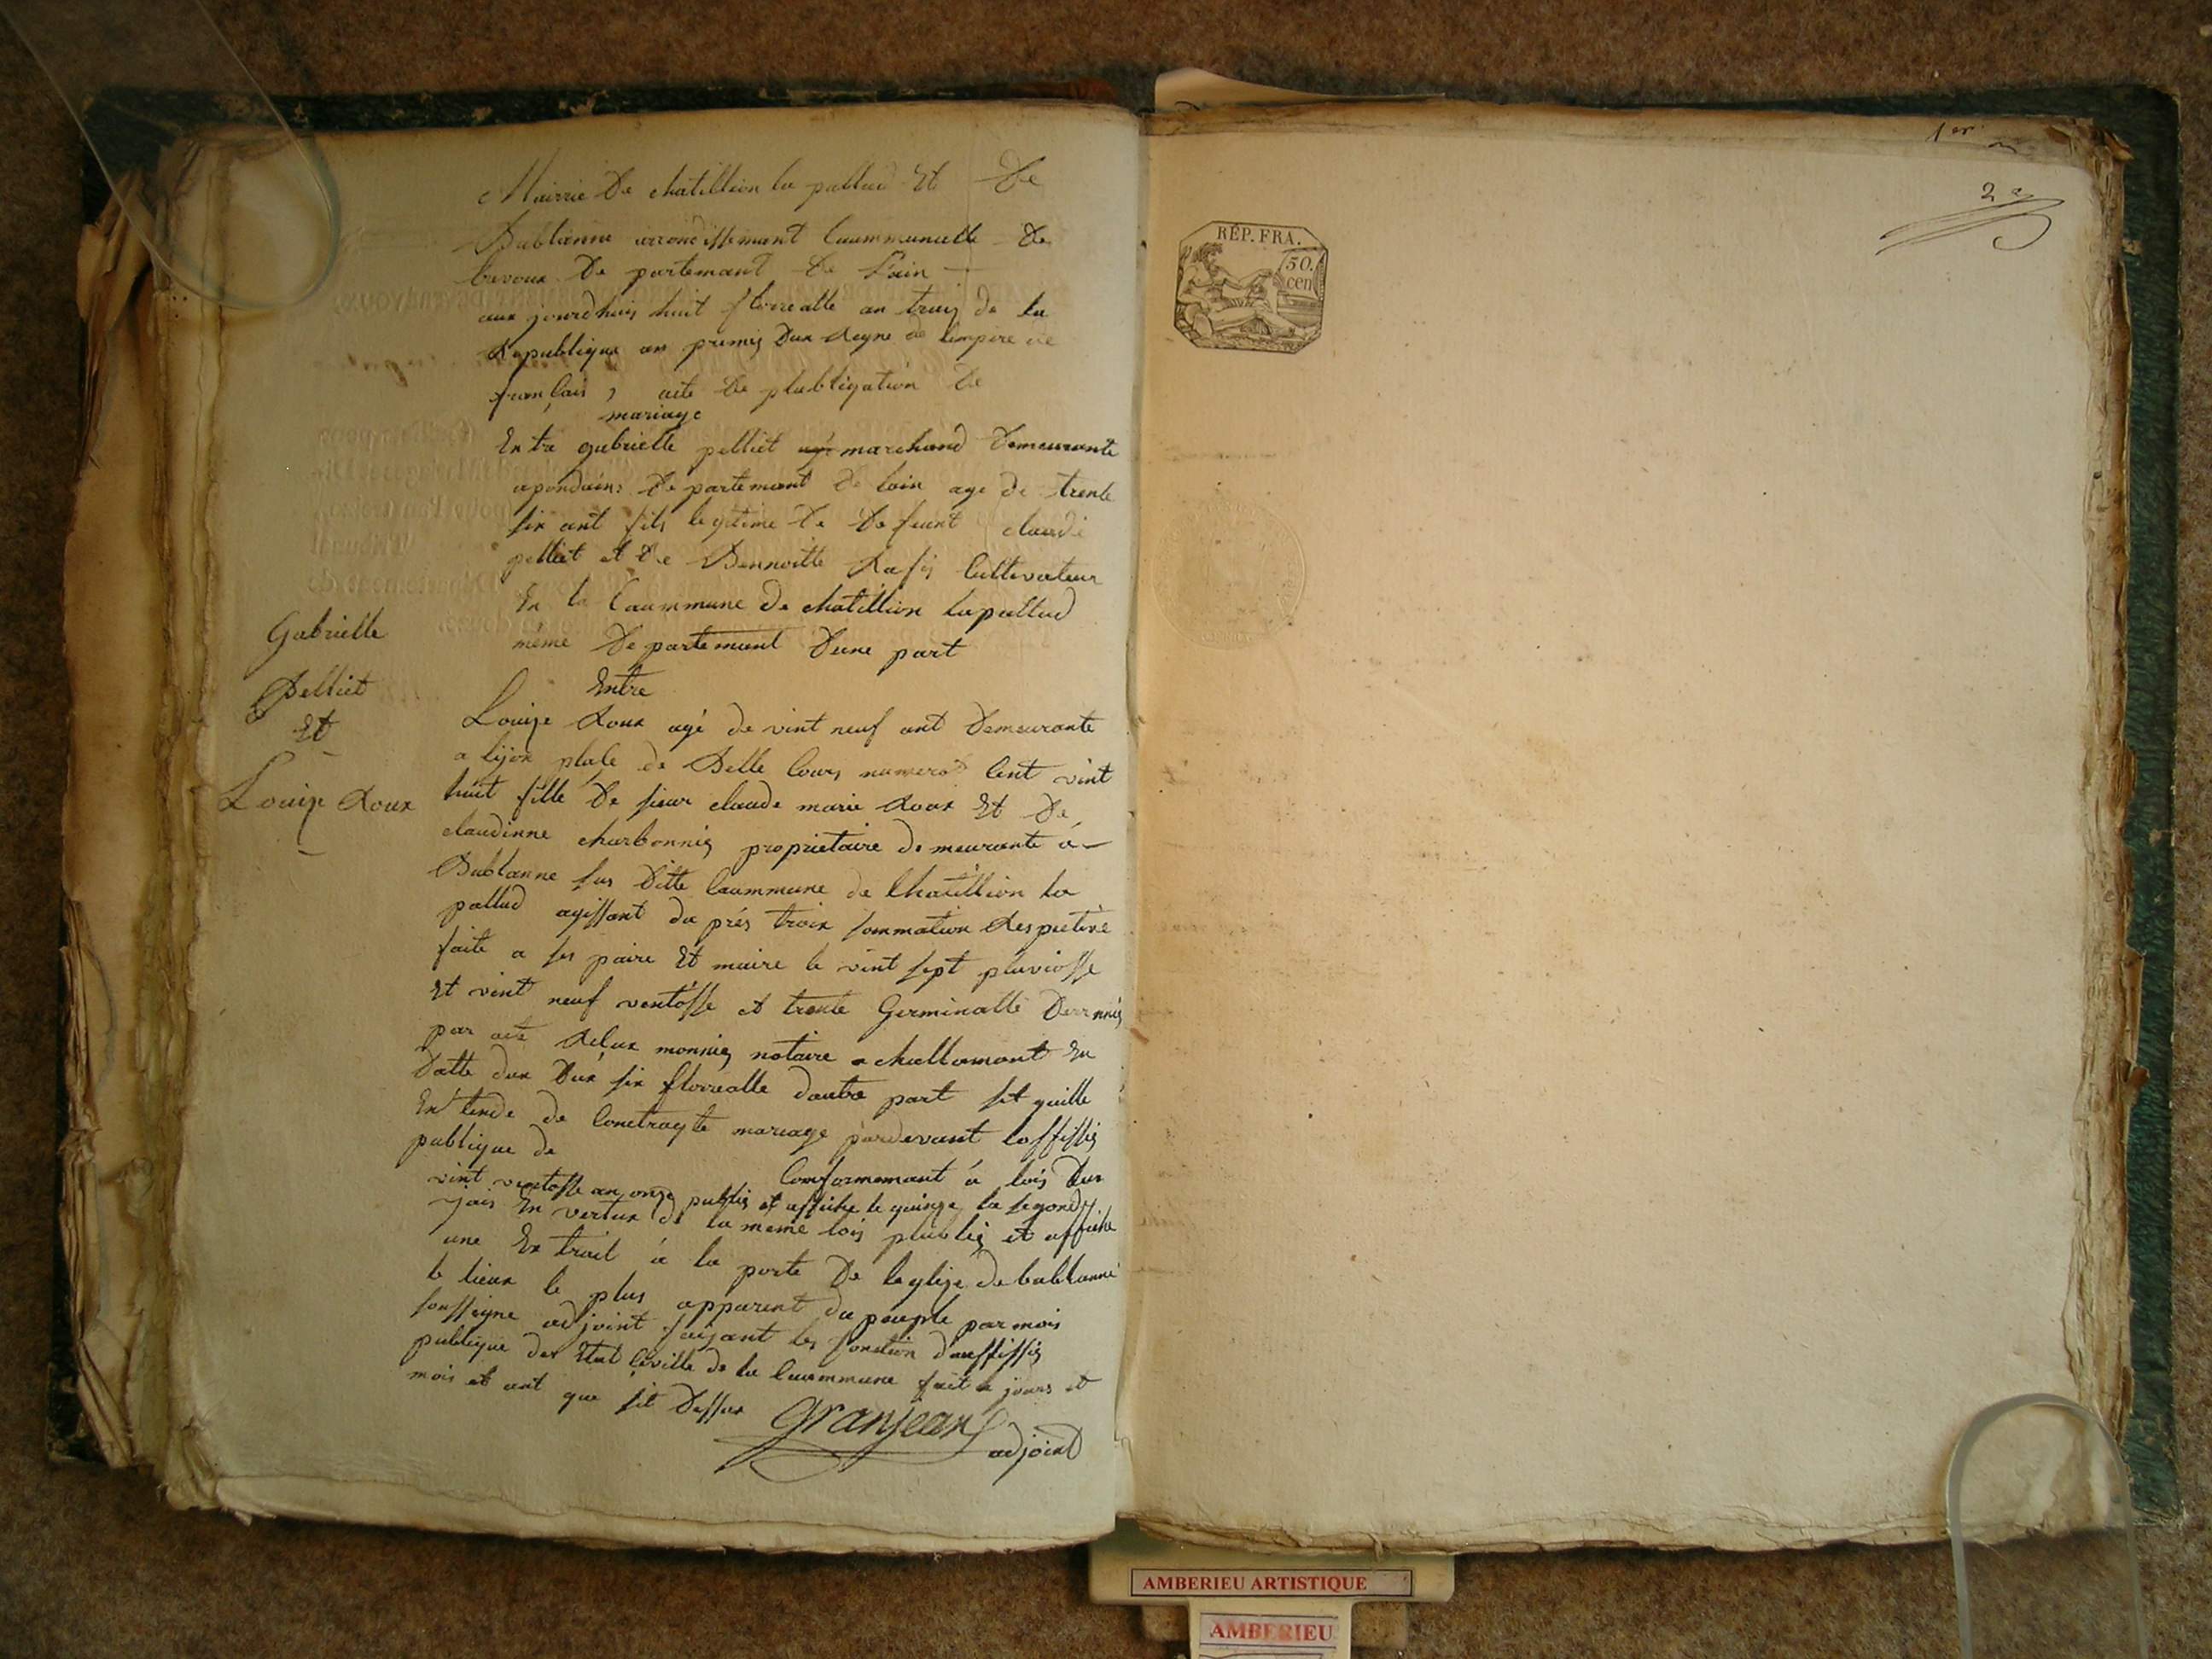 Mairie De chatillion la pallud Et De
Bublanne arrondissemant Caummunalle De
De partemant De Lain
aux jourdhuis huit florealle an treiz de la
Republique an premis Dux Regne de lempire de
francais, acte De plubligation De
mariage
Entre gabrielle pelliet marchand Demeurante
apondains De partemant De Lain age de trente
six ant fils legitime De Defeunt claude
pelliet et De Bennoitte Cultivateur
En la Caummune De chatillion lapallud
même De partemant Deune part
Entre
Gabrielle
Pelliet
Et
Louise Roux
Louise Roux agé de vint neuf ant Demeurante
a lijon place de Belle Cours numero Cent vint
huit fille De sieur claude marie Roux Et De
claudinne charbonnis proprietaire Demeurante á
Bublanne sus Ditte Caummune de Chatillion la
pallud agissant da prés troix sommation Respietive
faite a ses paire Et maire le vint sept pluviosse
Et vint neuf ventosse et trente Germinalle Dernnis
par acte monnis notaire a challamont En
Datte dux Dux six florealle dautre part
En tende de Conctragte mariage pardevant loffissis
publique de
Comformemant á lois Dux
vint ventosse an onze publis et affiche le quinze la segondz
En vertux de la meme lois plublis et affiche
une Extrait á la porte De leglize de bublanne
le lieux le plus apparent du peuple par mois
soussigne adjoint faisant les fonction dauffissis
publique det Etat Civille de la Caummune fait a jours et
mois et ant que sit Dessux
Granjean
adjoint
1er
2
RÉP. FRA.
50.
cen
AMBERIEU ARTISTIQUE
AMBERIEU